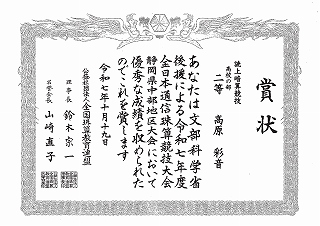 賞状
読上暗算競技
高校の部
二等 高原彩音
あなたは文部科学省
後援による令和七年度
全日本通信珠算競技大会
静岡県中部地区大会において
優秀な成績を収められた
のでこれを賞します
令和七年十月十九日
公益社団法人全国珠算教育連盟
理事長 鈴木宗一
名誉会長 山崎直子